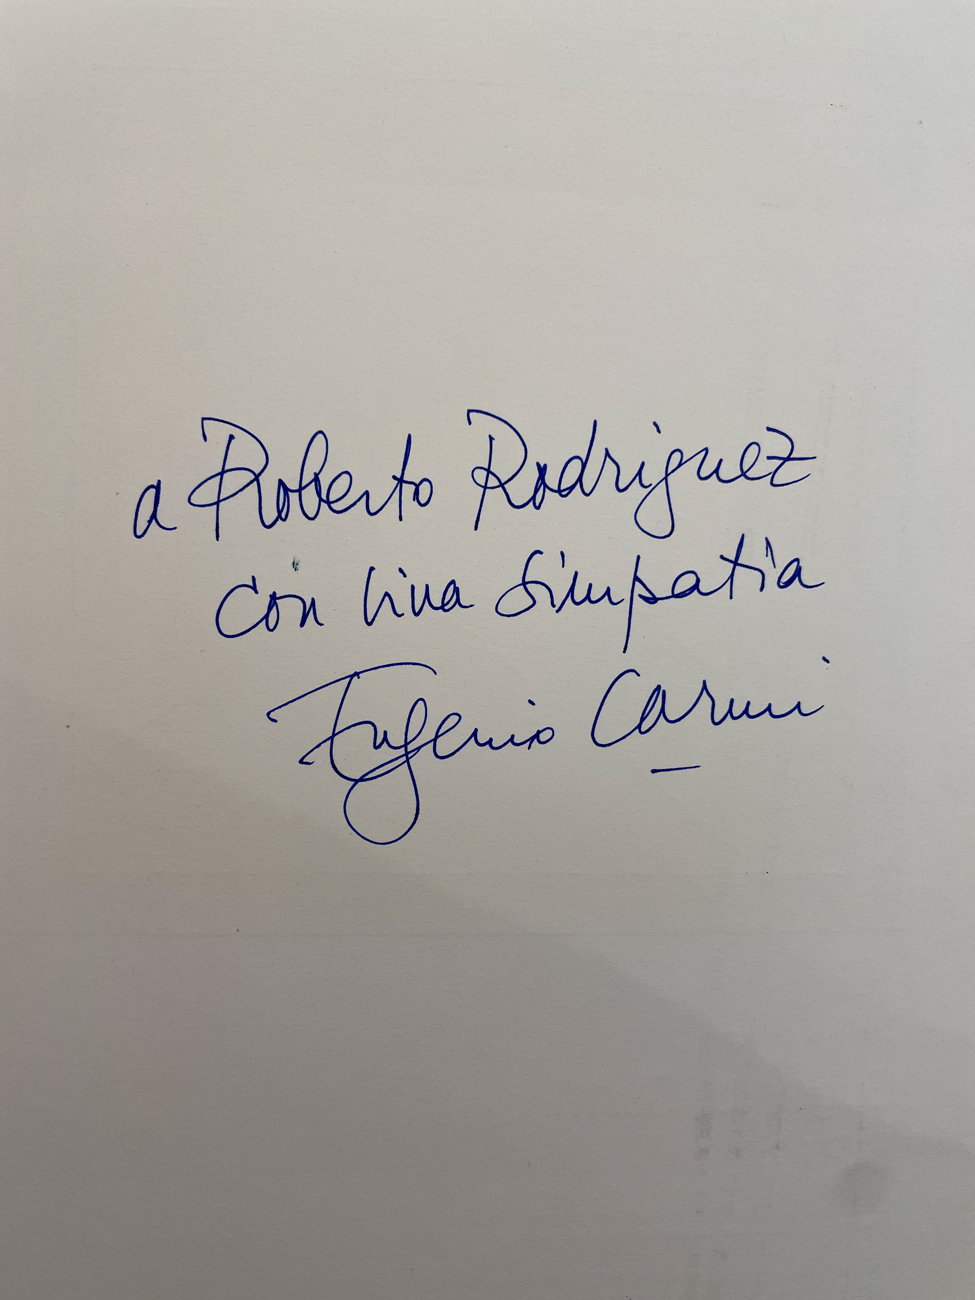 a Roberto Rodriguez
con viva simpatia
Eugenio Carmi